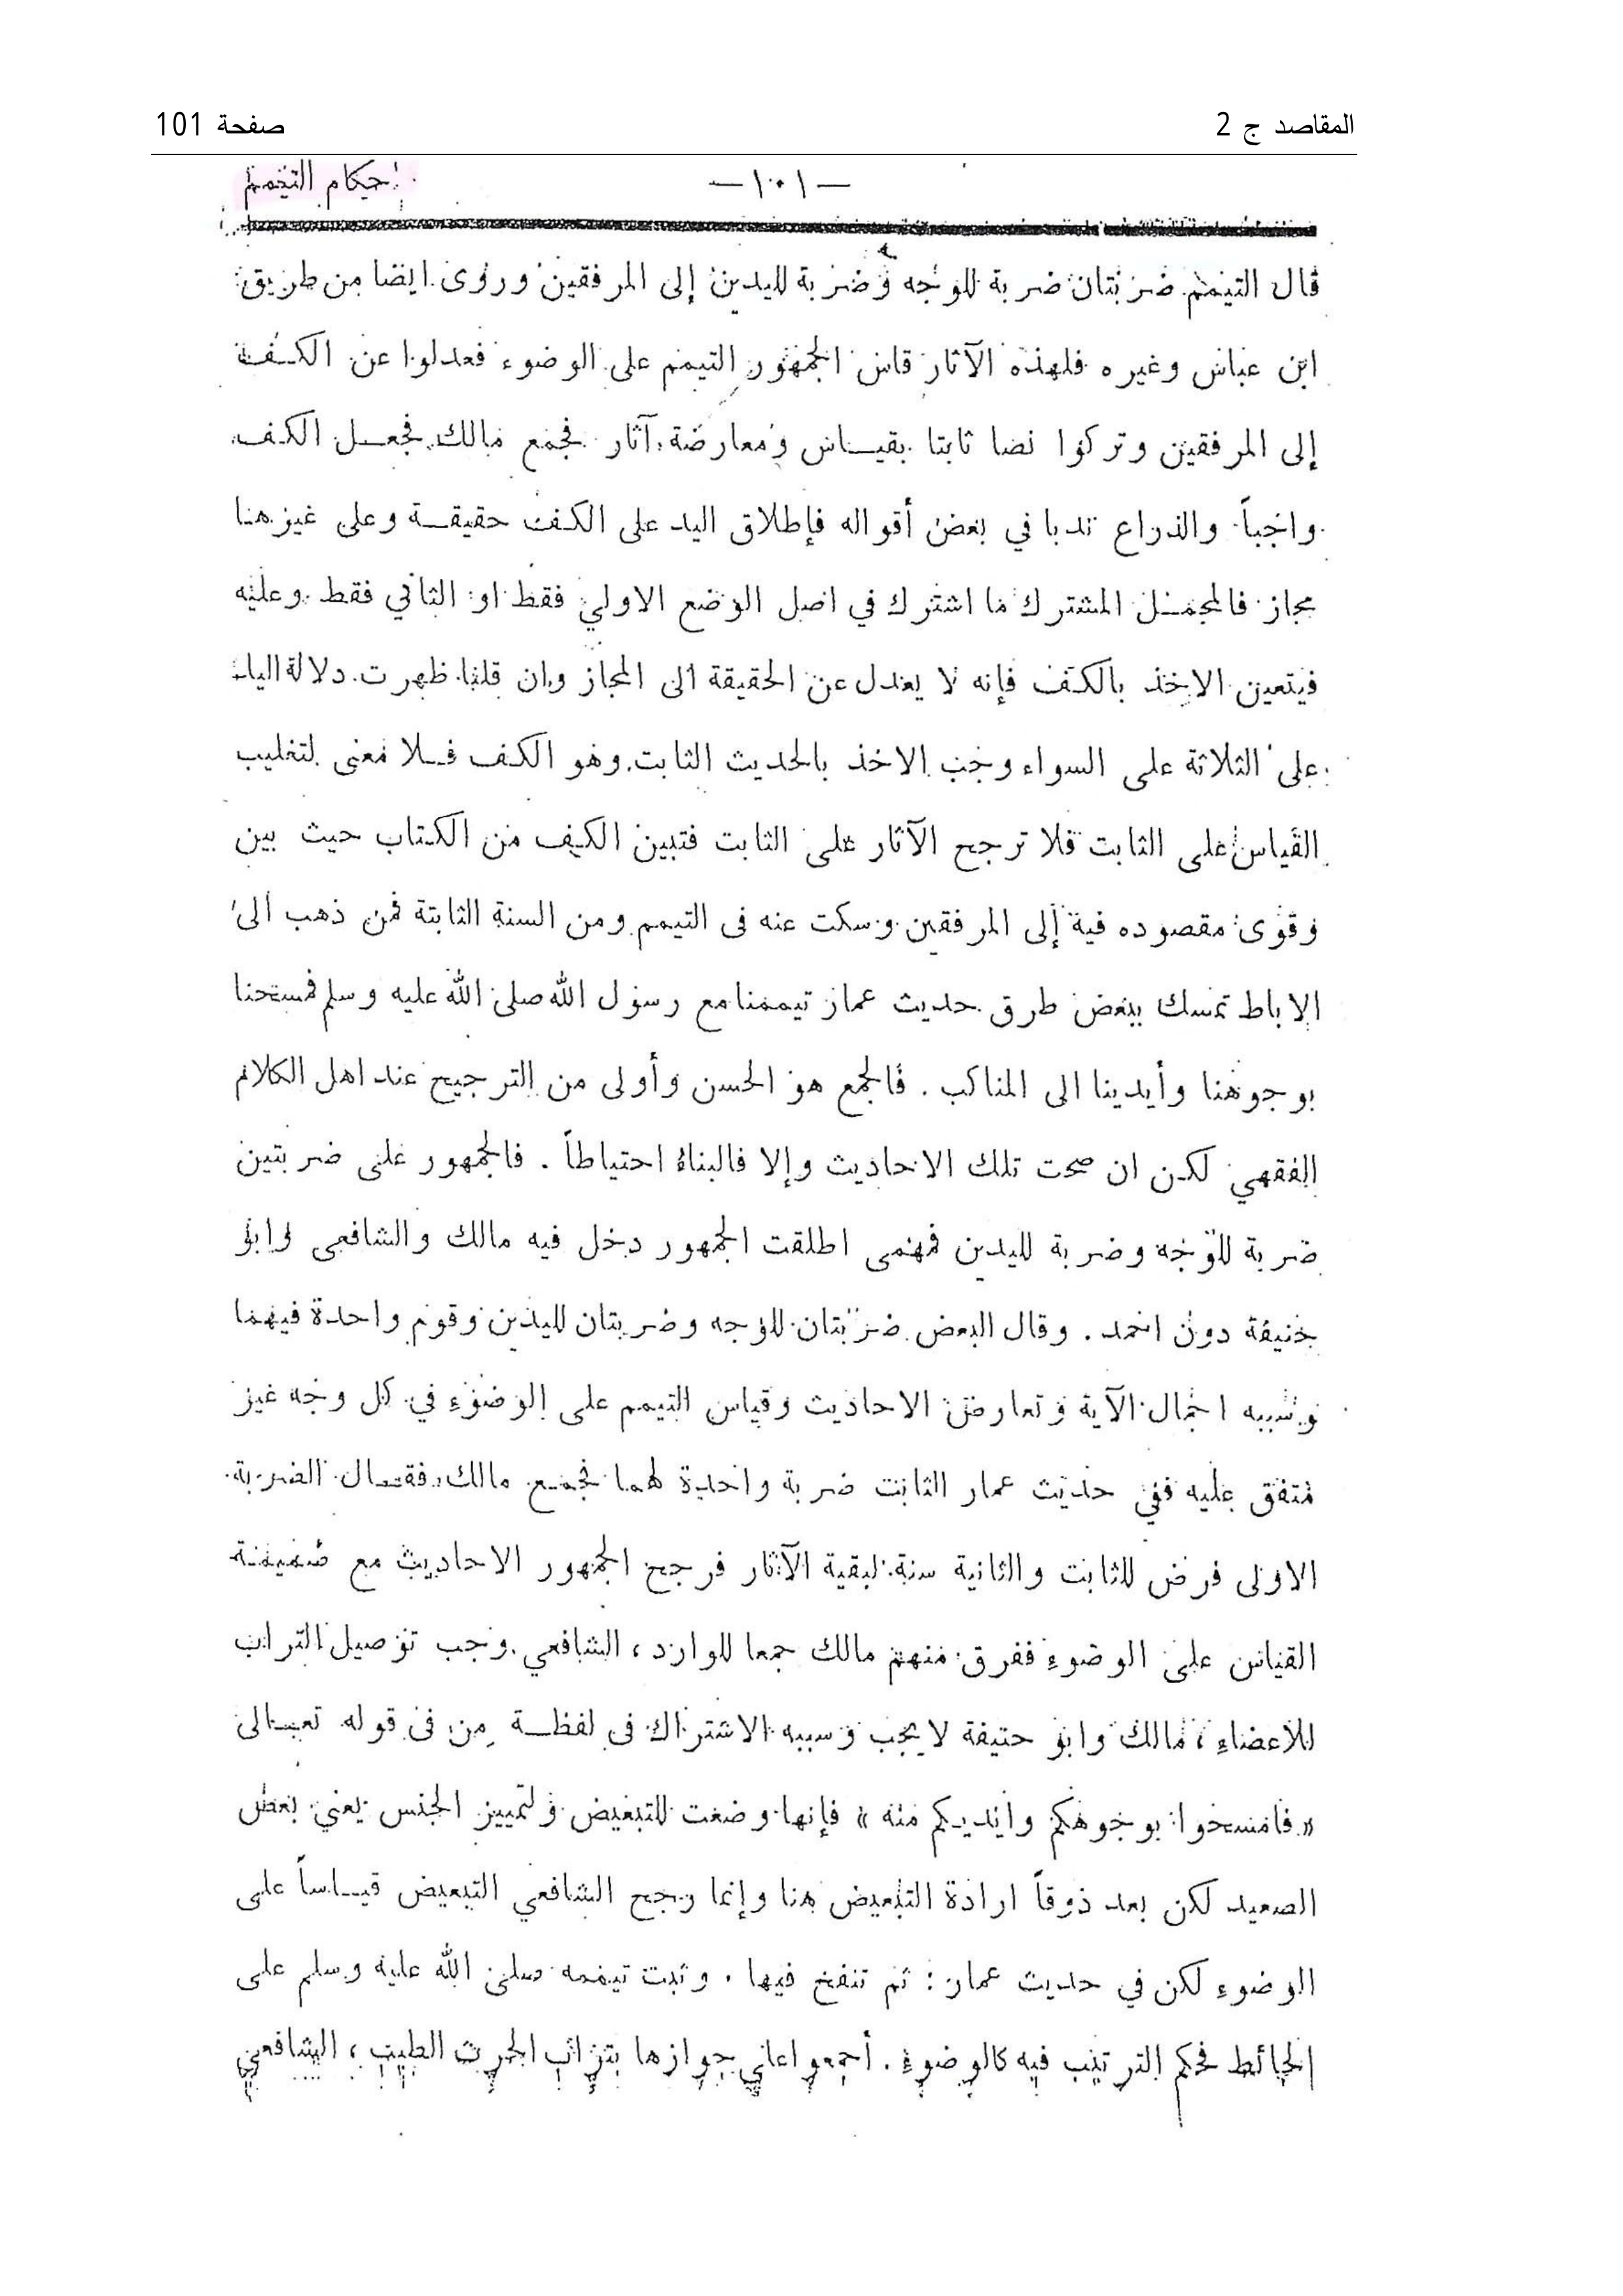 المقاصد ج 2
صفحة 101
— ١٠١ —
احكام التيمم
قال التيمم ضربتان ضربة للوجه وضربة لليدين إلى المرفقين وروى ايضا من طريق
ابن عباس وغيره فلهذه الآثار قاس الجمهور التيمم على الوضوء فعدلوا عن الكف
إلى المرفقين وتركوا نصا ثابتا بقياس ومعارضة آثار فجمع مالك فجعل الكف
واجباً والذراع ندبا في بعض أقواله فإطلاق اليد على الكف حقيقة وعلى غيرهنا
مجاز فالمجمل المشترك ما اشترك في اصل الوضع الاولي فقط او الثاني فقط وعليه
فيتعين الاخذ بالكف فإنه لا يعدل عن الحقيقة الى المجاز وان قلنا ظهرت دلالة اليد
على الثلاثة على السواء وجب الاخذ بالحديث الثابت وهو الكف فلا معنى لتغليب
القياس على الثابت فلا ترجح الآثار على الثابت فتبين الكيف من الكتاب حيث بين
وقوى مقصوده فية إلى المرفقين وسكت عنه فى التيمم ومن السنة الثابتة فمن ذهب الى
الاباط تمسك ببعض طرق حديث عمار تيممنا مع رسول الله صلى الله عليه وسلم فمسحنا
بوجوهنا وأيدينا الى المناكب . فالجمع هو الحسن وأولى من الترجيح عند اهل الكلام
الفقهي لكن ان صحت تلك الاحاديث وإلا فالبناء احتياطاً . فالجمهور على ضربتين
ضربة للوجه وضربة لليدين فمهمى اطلقت الجمهور دخل فيه مالك والشافعى وابو
حنيفة دون احمد . وقال البعض ضربتان للوجه وضربتان لليدين وقوم واحدة فيهما
وسببه اجمال الآية وتعارض الاحاديث وقياس التيمم على الوضوء في كل وجه غير
متفق عليه ففي حديث عمار الثابت ضربة واحدة لهما فجمع مالك فقال الضربة
الاولى فرض للثابت والثانية سنة لبقية الآثار فرجح الجمهور الاحاديث مع ضميمة
القياس على الوضوء ففرق منهم مالك جمعا للوارد ، الشافعي وجب توصيل التراب
للأعضاء ، مالك وابو حتيفة لا يجب وسببه الاشتراك فى لفظة من فى قوله تعالى
« فامسحوا بوجوهكم وايديكم منه » فإنها وضعت للتبعيض ولتمييز الجنس يعني بعض
الصعيد لكن بعد ذوقاً ارادة التبعيض هنا وإنما رجح الشافعي التبعيض قياساً على
الوضوء لكن في حديث عمار : ثم تنفخ فيها . وثبت تيممه صلى الله عليه وسلم على
الحائط فحكم الترتيب فيه كالوضوء . أجمعوا على جوازها بتراب الحرث الطيب ، الشافعي